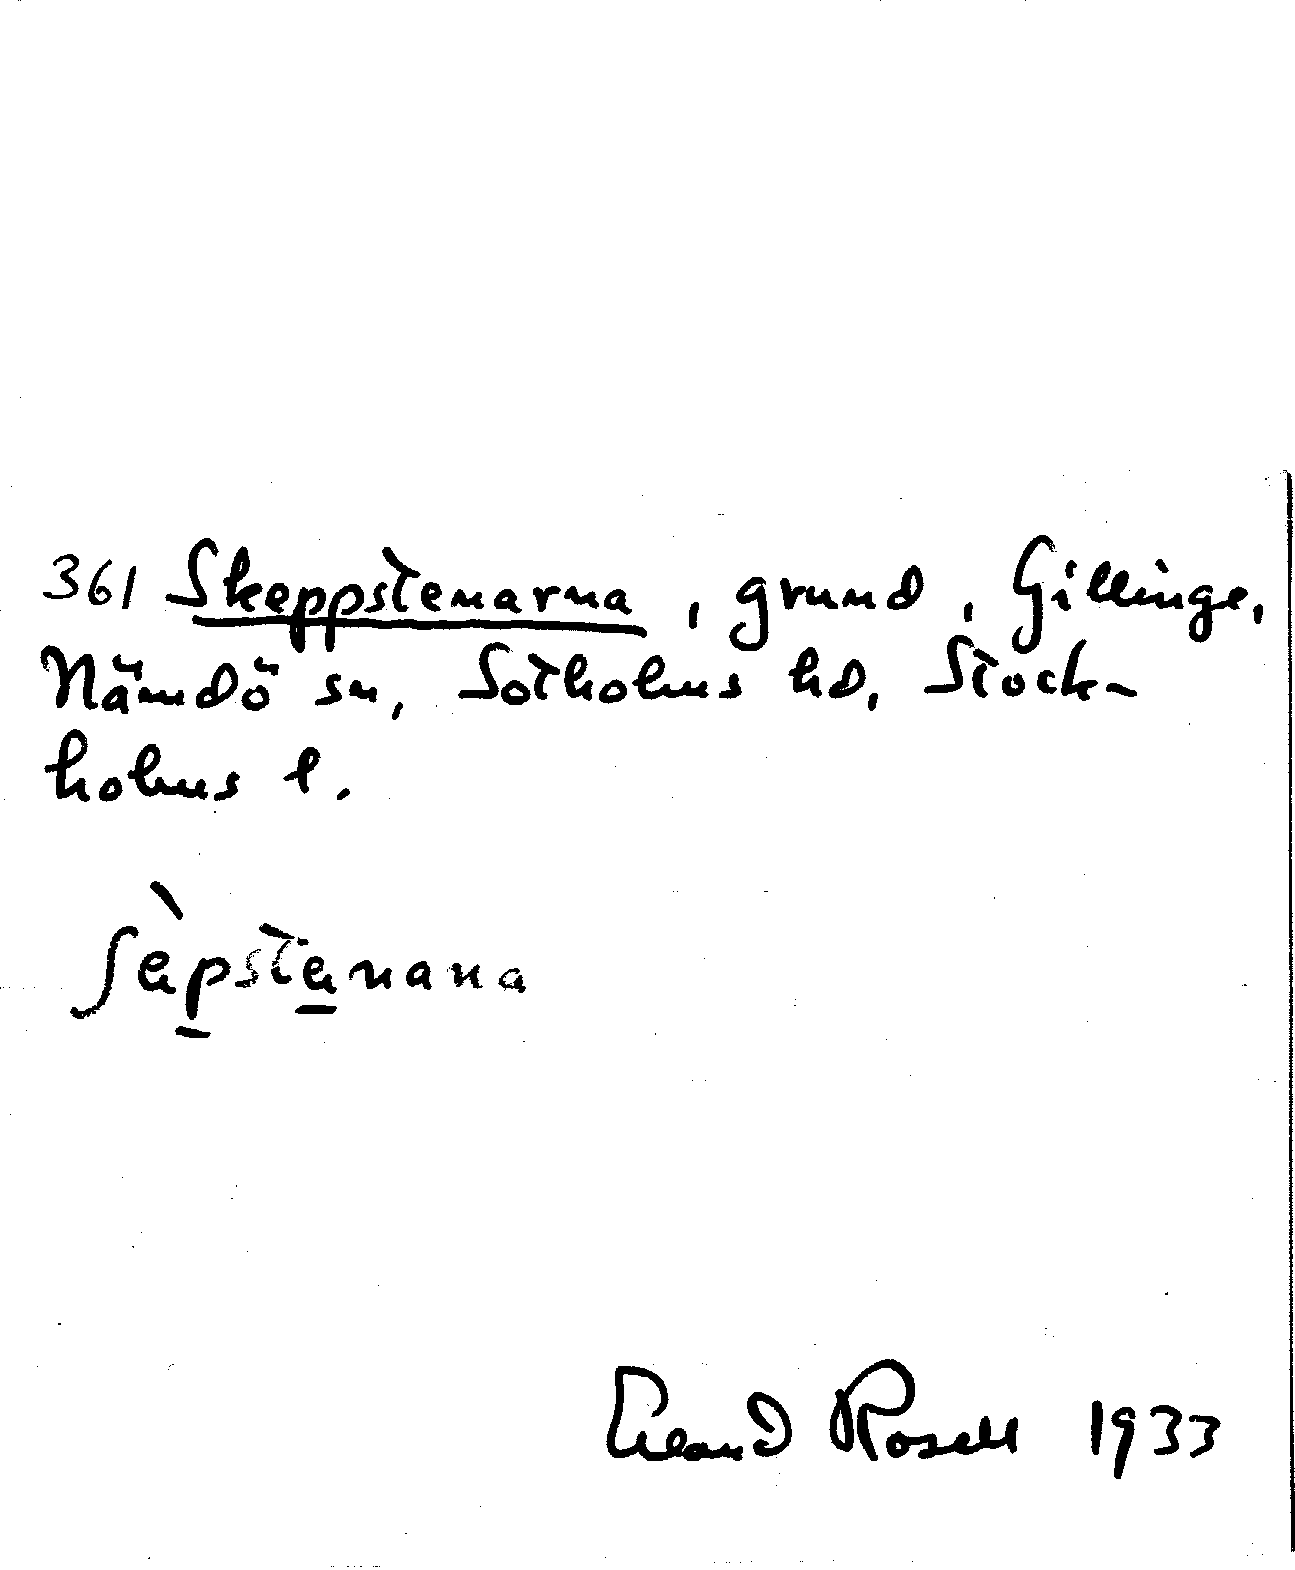 361 Skeppstenarna, grund, Gillinge,
Nämdö sn, Sotholms hd, Stock-
holms l.
ʃèpstenana
Erland Rosell 1933